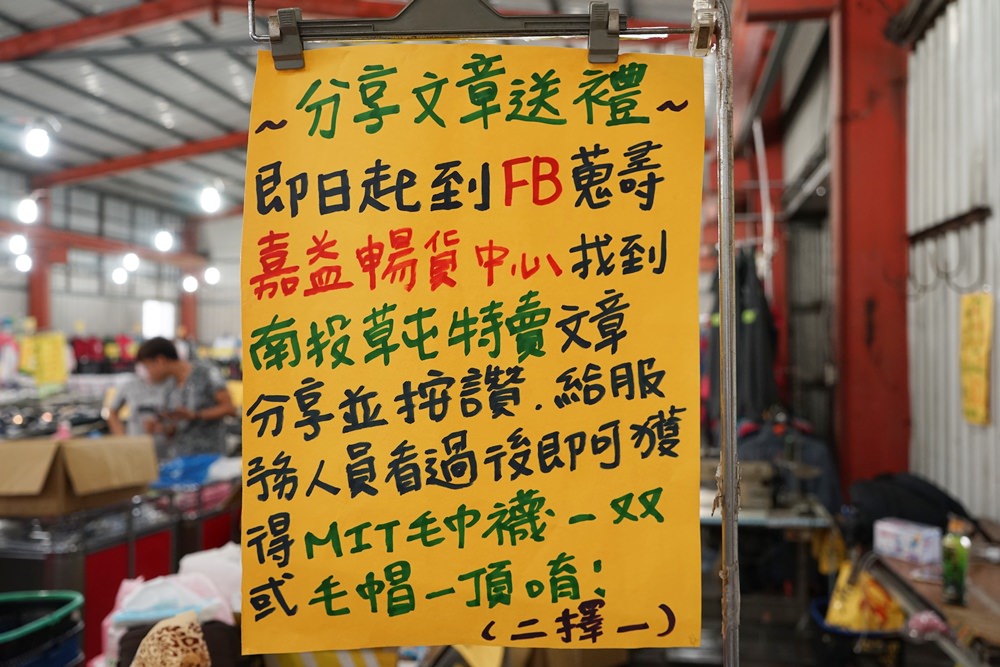 ~分享文章送禮~
即日起到FB蒐尋
嘉益暢貨中心找到
南投草屯特賣文章
分享並按讚.給服
務人員看過後即可獲
得MIT毛巾襪一双
或毛帽一頂唷!
(二擇一)